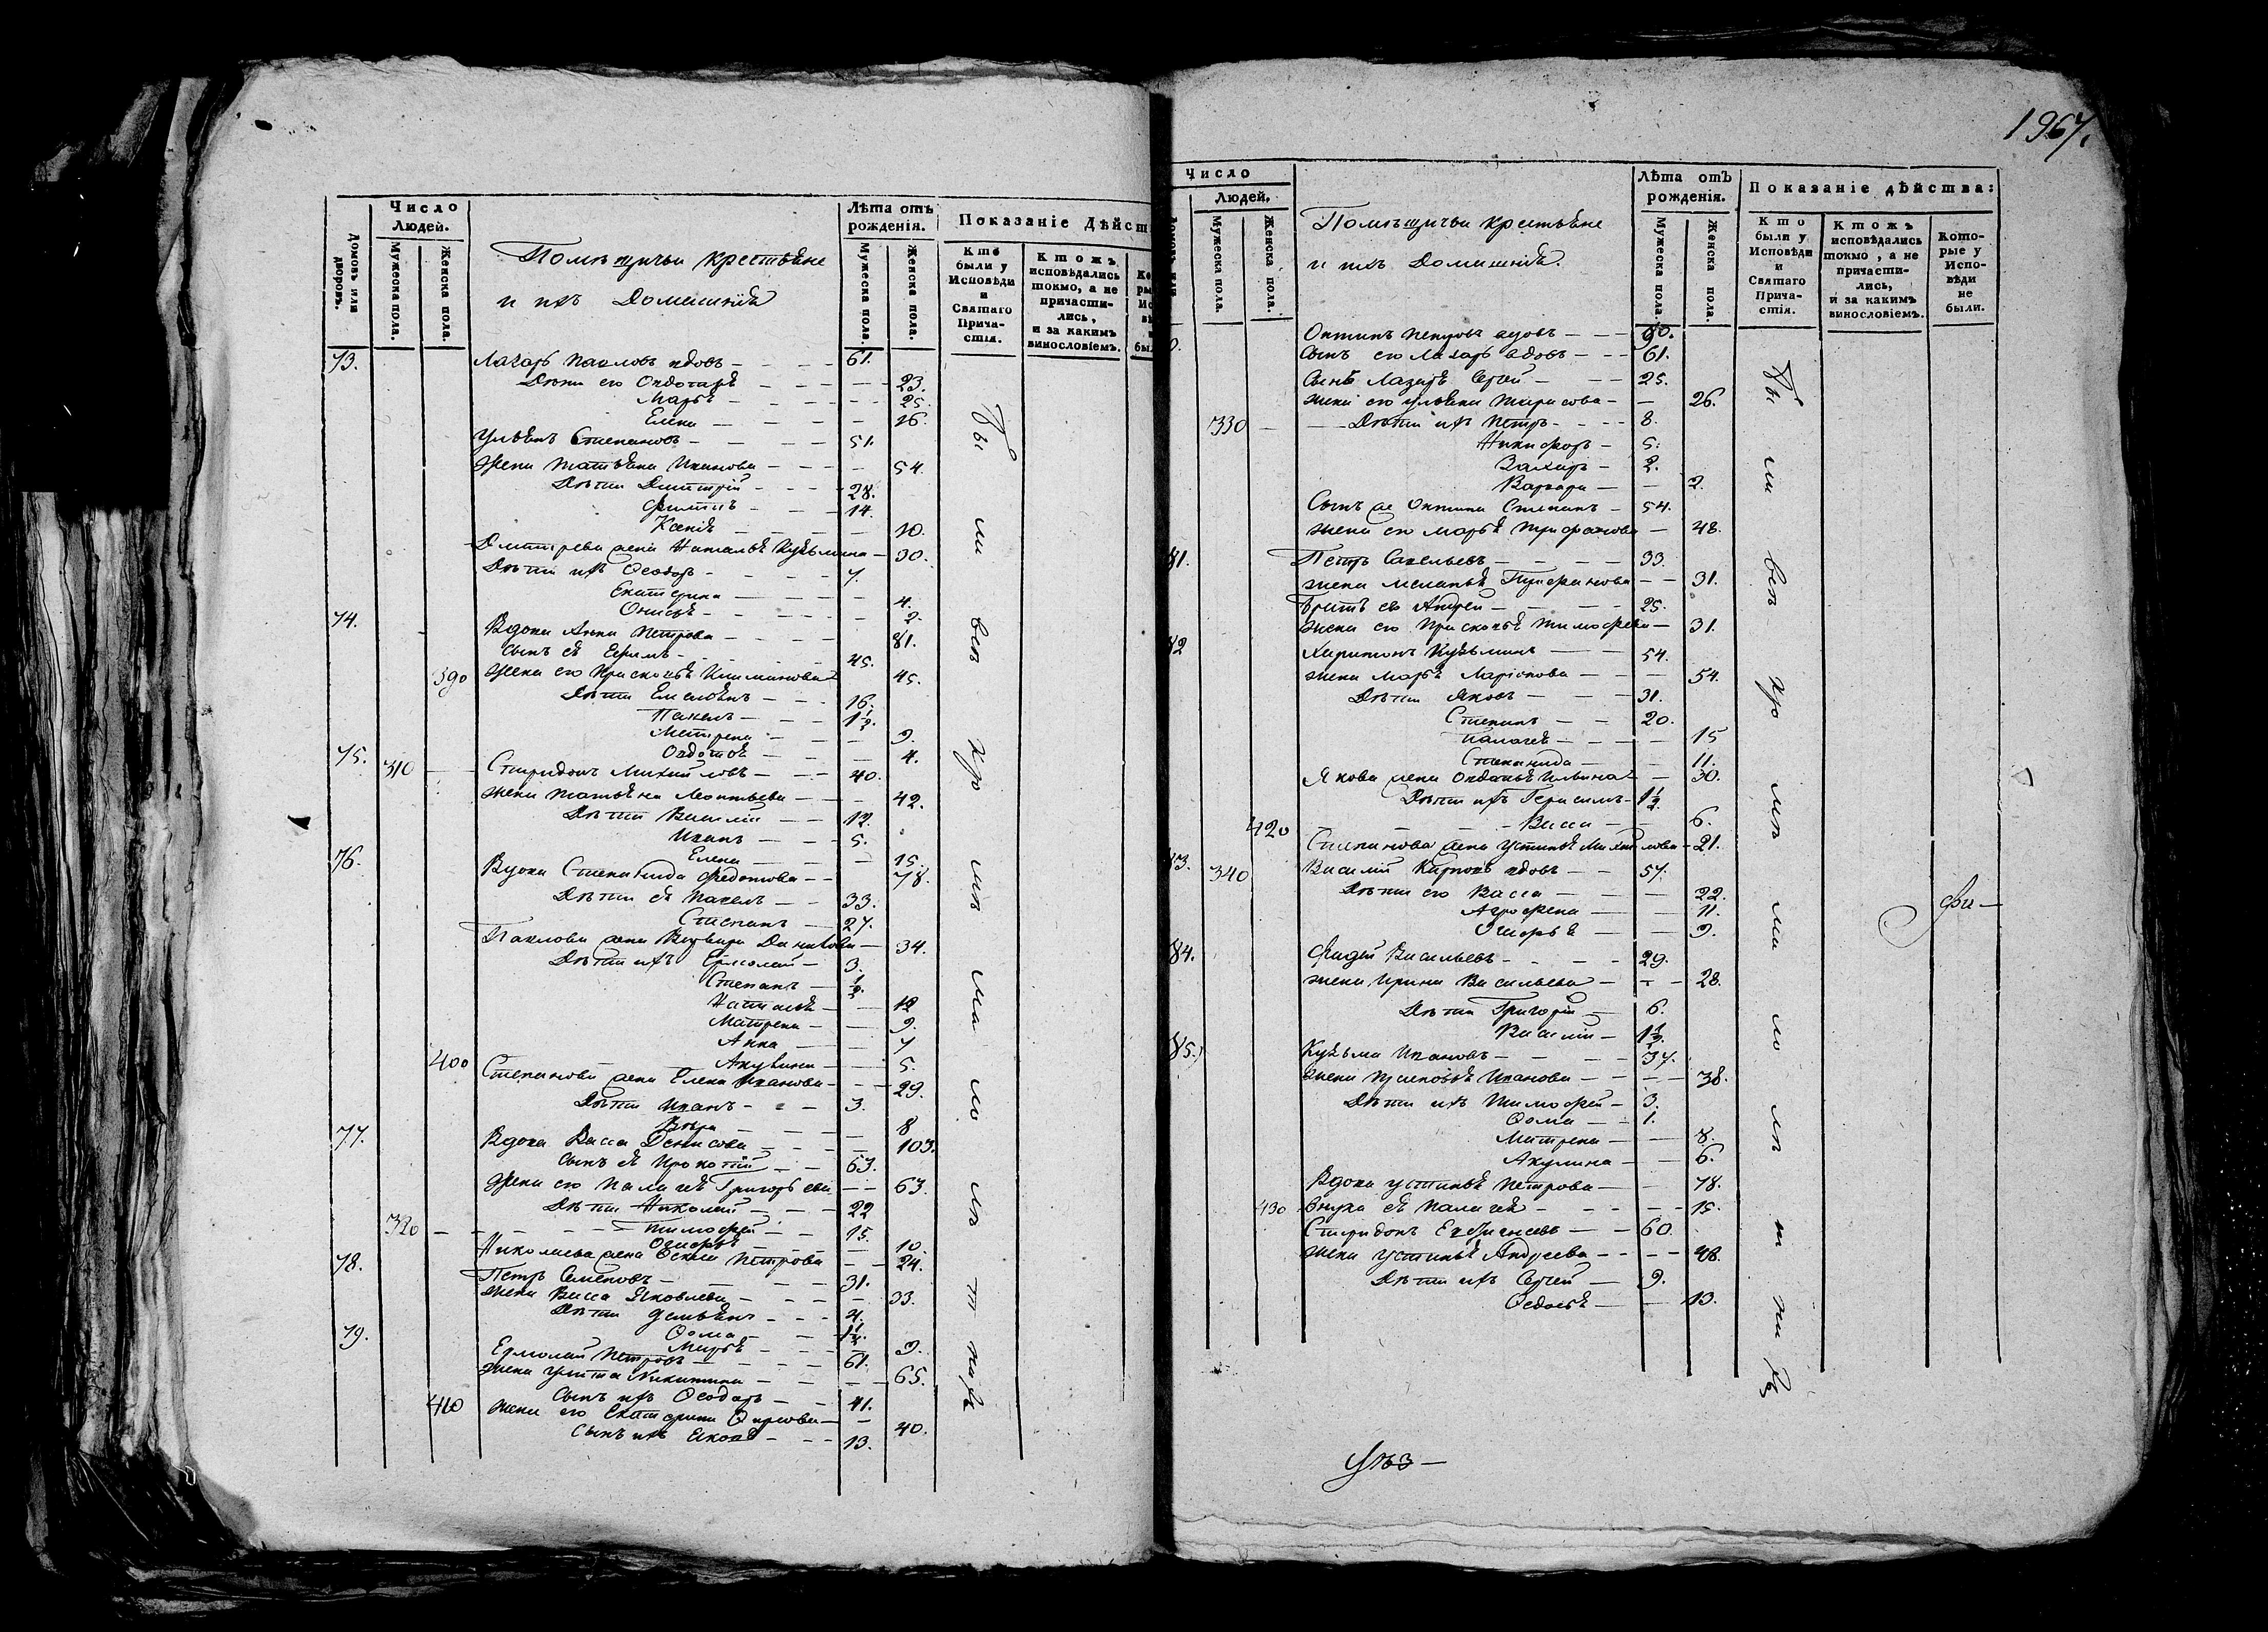 1967.
Домовъ или дворовъ.
Число Людей.
Мужеска пола.
Женска пола.
Помѣщичьи крестьяне
и ихъ Домашнія
Лѣта отъ рожденія.
Мужеска пола.
Женска пола.
Показаніе Дѣйст
Кто были у Исповѣди и Святаго Прича-стія.
Ктожъ исповѣдались токмо, а не причасти-лись, и за какимъ винословіемъ.
73. Лазарь Павловъ вдовъ - 61.
Дѣти его Овдотья - 23.
Марья - 25.
Елена - 26.
Ульянъ Степановъ - 51.
Жена Татьяна Иванова - 54.
Дѣти Дмитрій - 28.
Филипъ - 14.
Ксенія - 10.
Дмитрева жена Наталья Кузьмина - 30.
Дѣти ихъ Ѳеодоръ - 7.
Екатерина - 4.
Онисья - 2.
74. Вдова Анна Петрова - 81.
Сынъ ея Ефимъ - 45.
390 Жена его Прасковья Климанова - 45.
Дѣти Емельянъ - 16.
Павелъ - 1½.
Матрена - 9.
Овдотья - 4.
75. 310 Спиридонъ Михайловъ - 40.
Жена Татьяна Леонтьева - 42.
Дѣти Василій - 12.
Иванъ - 5.
Елена - 15.
76. Вдова Степанида Федотова - 78.
Дѣти ея Павелъ - 33.
Степанъ - 27.
Павлова жена Варвара Данилова - 34.
Дѣти ихъ Ермолай - 3.
Степанъ - ½.
Наталья - 12
Матрена - 9.
Анна - 7
400 Акулина - 5.
Степанова жена Елена Иванова - 29.
Дѣти Иванъ - 3.
Вѣра - 8
77. Вдова Васса Денисова - 103.
Сынъ ея Прокопій - 63.
Жена его Палагея Григорьева - 63.
Дѣти Николай - 22
320 Тимофей - 15.
Огафья - 10.
Николаева жена Ѳекла Петрова - 24.
78. Петръ Семеновъ - 31.
Жена Васса Яковлева - 33.
Дѣти Демьянъ - 4.
Ѳома - 1½.
Марья - 9.
79. Ермолай Петровъ - 61.
Жена Улита Никитина - 65.
Сынъ ихъ Ѳеодоръ - 41.
410 Жена его Екатерина - 40.
Сынъ ихъ Яковъ - 13.
Бы ли всѣ кро мѣ ма ло лѣ т ныхъ
Число Людей.
Мужеска пола.
Женска пола.
Помѣщичьи крестьяне
и ихъ Домашнія.
Лѣта отъ рожденія.
Мужеска пола.
Женска пола.
Показаніе дѣйства:
Кто были у Исповѣди и Святаго Прича-стія.
Ктожъ исповѣдались токмо, а не причасти-лись, и за какимъ винословіемъ.
Кото-рые у Испо-вѣди не были.
Антипъ Петровъ вдовъ - 90.
Сынъ его Лазарь вдовъ - 61.
Сынъ Лазаря Сергей - 25.
жена его Ульяна Тарасова - 26.
330 Дѣти ихъ Петръ - 8.
Никифоръ - 5.
Захаръ - 2.
Варвара - 2.
Сынъ же Антипа Степанъ - 54.
жена его Марья Трифанова - 48.
81. Петръ Савельевъ - 33.
жена Меланья Трифанова - 31.
братъ его Андрей - 25.
жена его Прасковья Тимофева - 31.
82 Харитонъ Кузьминъ - 54.
жена Марья Ларіонова - 54.
Дѣти Яковъ - 31.
Степанъ - 20.
Палагея - 15
Степанида - 11.
Якова жена Овдотья Ильина - 30.
Дѣти ихъ Герасимъ - 1½.
420 Васса - 6.
Степанова жена Устинья Михайлова - 21.
83. 340 Василій Карповъ вдовъ - 57.
Дѣти его Васса - 22.
Агрофена - 11.
Огафья - 9.
84. Фадей Васильевъ - 29.
жена Ирина Васильева - 28.
Дѣти Григорій - 6.
Василій - 1½.
85. Кузьма Ивановъ - 37.
жена Прасковья Иванова - 38.
Дѣти ихъ Тимофей - 3.
Ѳома - 1.
Матрена - 8.
Акулина - 6.
Вдова Устинья Петрова - 78.
430 внука ея Палагея - 15.
Спиридонъ - 60.
жена Устинья Андреева - 48.
Дѣти ихъ Сергей - 9.
Ѳедосья - 13.
Бы ли всѣ кро мѣ ма ло лѣ т ныхъ